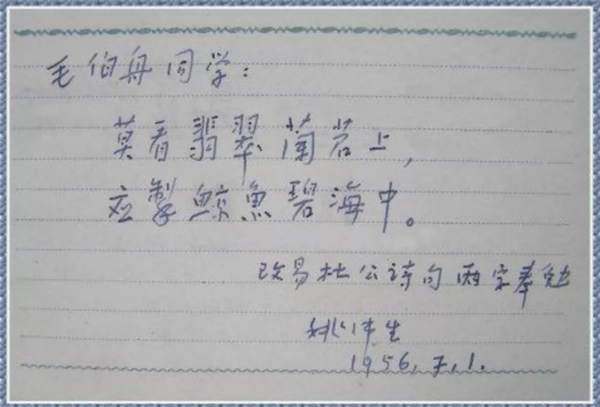 毛伯舟同学:
莫看翡翠蘭苕上,
应掣鯨魚碧海中。
改易杜公诗句两字奉勉
生
1956.7.1.